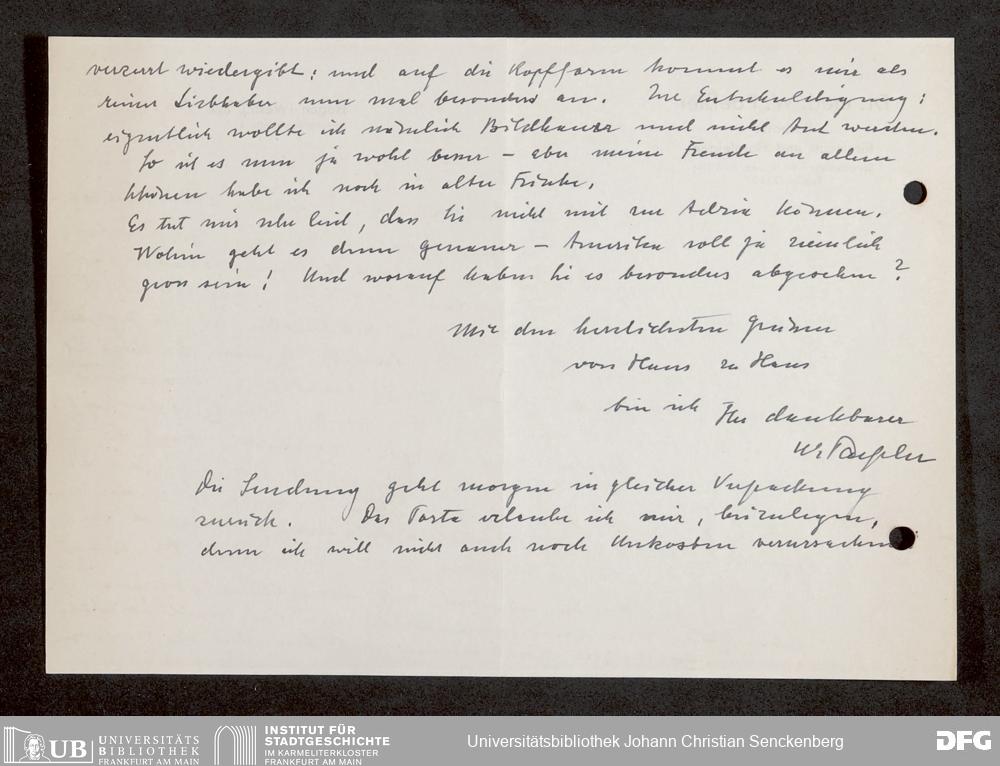 verzerrt wiedergibt: und auf die Kopfform kommt es mir als
reiner Liebhaber nun mal besonders an. Zur Entschuldigung:
eigentlich wollte ich nämlich Bildhauer und nicht Arzt werden.
So ist es nun ja wohl besser – aber meine Freude an allem
Schönen habe ich noch in alter Frische.
Es tut mir sehr leid, dass Sie nicht mit zur Adria können.
Wohin geht es denn genauer – Amerika soll ja ziemlich
gross sein! Und worauf haben Sie es besonders abgesehen?
Mit den herzlichsten Grüssen
von Haus zu Haus
bin ich Ihr dankbarer
Die Sendung geht morgen in gleicher Verpackung
zurück. Das Porto erlaube ich mir, beizulegen,
denn ich will nicht auch noch Unkosten verursachen
UB UNIVERSITÄTS
BIBLIOTHEK
FRANKFURT AM MAIN
INSTITUT FÜR
STADTGESCHICHTE
IM KARMELITERKLOSTER
FRANKFURT AM MAIN
Universitätsbibliothek Johann Christian Senckenberg
DFG